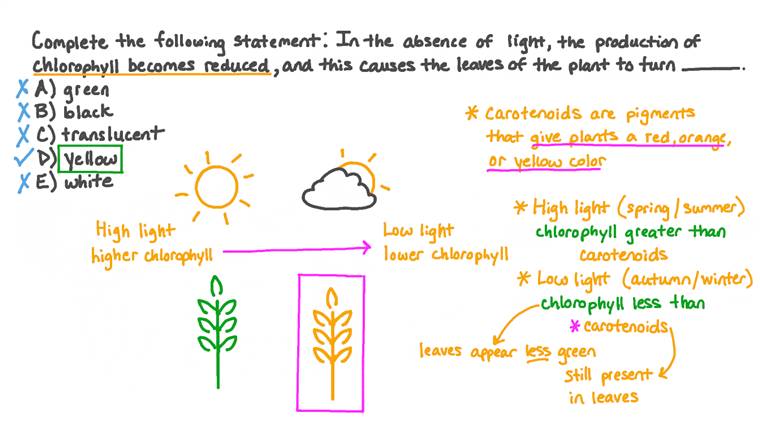 Complete the following statement: In the absence of light, the production of
chlorophyll becomes reduced, and this causes the leaves of the plant to turn ______.
A) green
B) black
C) translucent
D) yellow
E) white
* Carotenoids are pigments
that give plants a red, orange,
or yellow color
High light
higher chlorophyll
Low light
lower chlorophyll
* High light (spring/summer)
chlorophyll greater than
carotenoids
* Low light (autumn/winter)
chlorophyll less than
* carotenoids
leaves appear less green
still present
in leaves